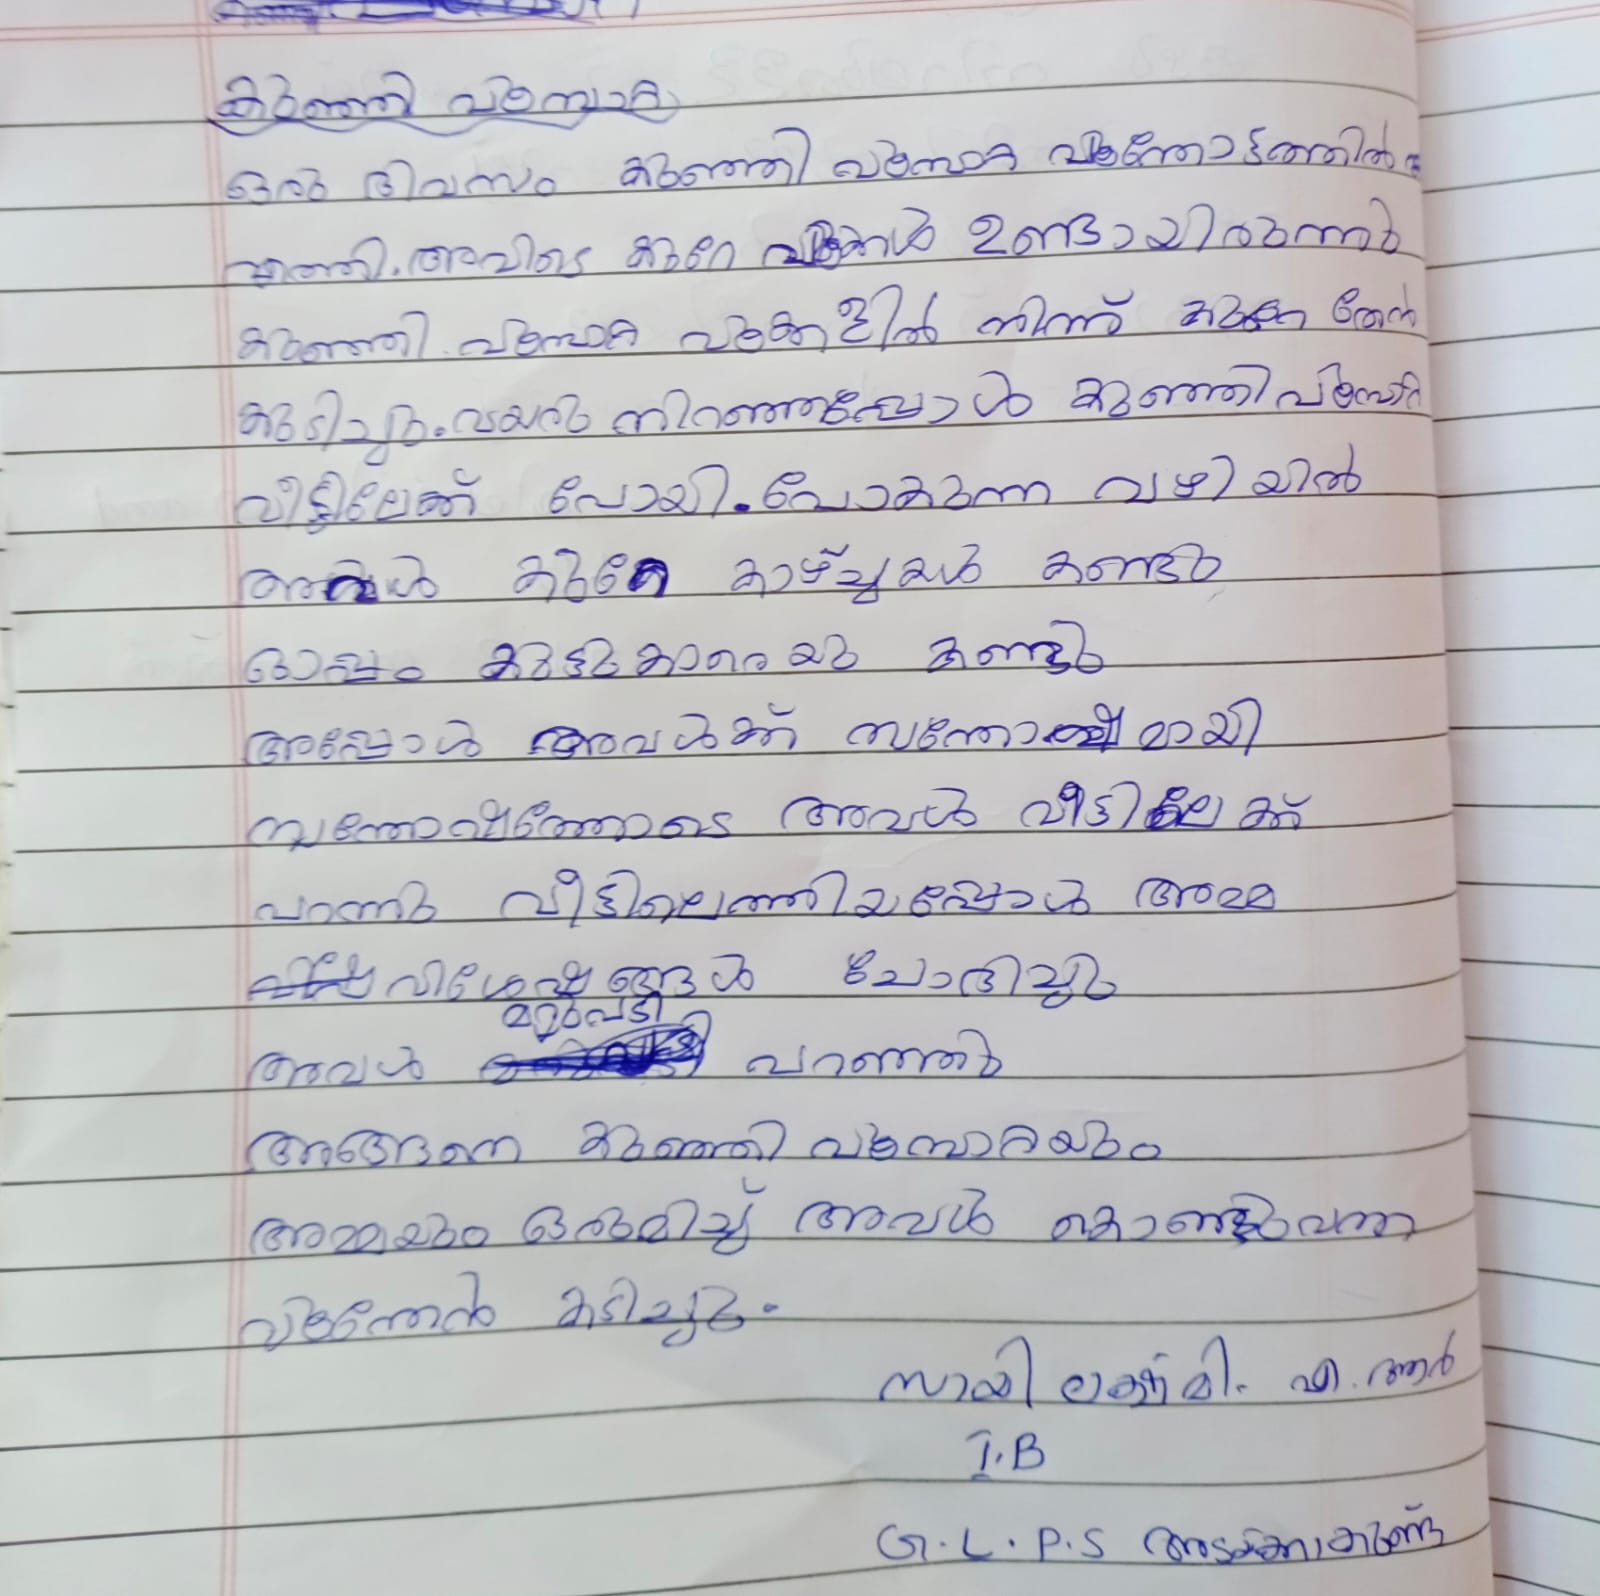 കുഞ്ഞി പൂമ്പാറ്റ
ഒരു ദിവസം കുഞ്ഞി പൂമ്പാറ്റ പൂന്തോട്ടത്തിൽ
എത്തി. അവിടെ കുറേ പൂക്കൾ ഉണ്ടായിരുന്നു
കുഞ്ഞി പൂമ്പാറ്റ പൂക്കളിൽ നിന്ന് കുറേ തേൻ
കുടിച്ചു. വയറു നിറഞ്ഞപ്പോൾ കുഞ്ഞി പൂമ്പാറ്റ
വീട്ടിലേക്ക് പോയി. പോകുന്ന വഴിയിൽ
അവൾ കുറേ കാഴ്ച്ചയൾ കണ്ടു
ഒപ്പം കൂട്ടുകാരെയു കണ്ടു
അപ്പോൾ അവൾക്ക് സന്തോഷമായി
സന്തോഷത്തോടെ അവൾ വീട്ടിലേക്ക്
പറന്നു വീട്ടിലെത്തിയപ്പോൾ അമ്മ
വിശേഷങ്ങൾ ചോദിച്ചു
അവൾ മറുപടി പറഞ്ഞു
അങ്ങനെ കുഞ്ഞി പൂമ്പാറ്റയും
അമ്മയും ഒരുമിച്ച് അവൾ കൊണ്ടുവന്ന
പൂന്തേൻ കുടിച്ചു.
സായി ലക്ഷ്മി. എ. ആർ
I.B
G.L.P.S അടക്കാകുണ്ട്